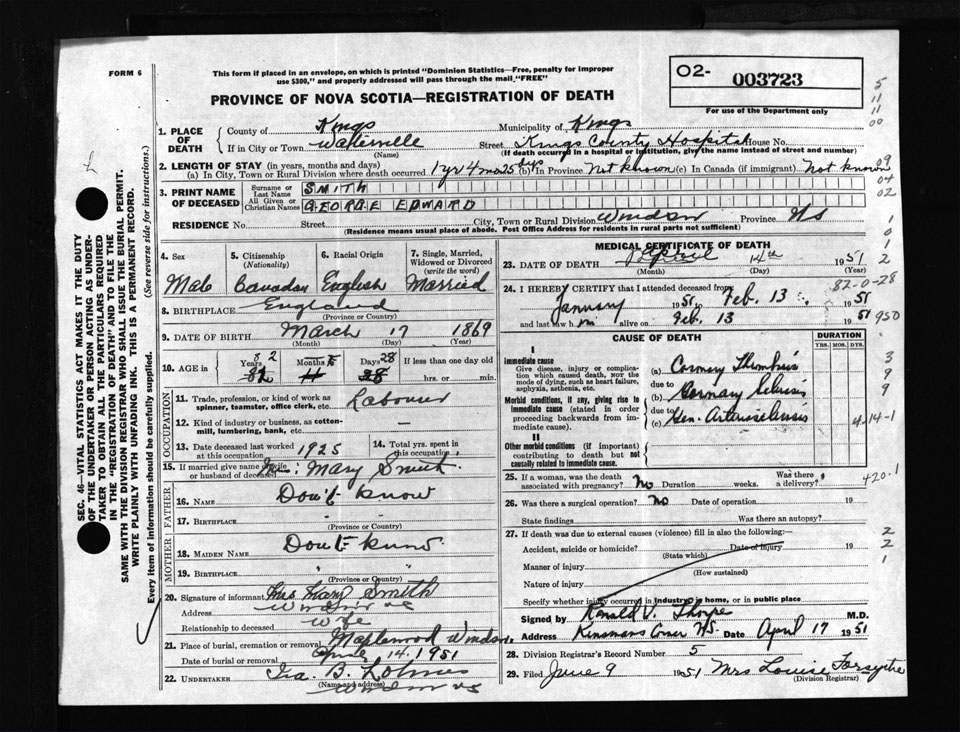 FORM 6
This form if placed in an envelope, on which is printed "Dominion Statistics—Free, penalty for improper
use $300," and properly addressed will pass through the mail "FREE"
PROVINCE OF NOVA SCOTIA—REGISTRATION OF DEATH
O2- 003723
For use of the Department only
5
11
11
00
1. PLACE OF DEATH
County of Kings Municipality of Kings
If in City or Town Waterville Street Kings County Hospital House No.
(Name) (If death occurred in a hospital or institution, give the name instead of street and number)
2. LENGTH OF STAY (in years, months and days)
(a) In City, Town or Rural Division where death occurred 1 yr 4 mos 25 days (b) In Province Not known (c) In Canada (if immigrant) Not known
09
04
02
3. PRINT NAME OF DECEASED
Surname or Last Name SMITH
All Given or Christian Names GEORGE EDWARD
RESIDENCE No. Street City, Town or Rural Division Windsor Province NS
(Residence means usual place of abode. Post Office Address for residents in rural parts not sufficient)
1
0
1
2
4. Sex 5. Citizenship (Nationality) 6. Racial Origin 7. Single, Married, Widowed or Divorced (write the word)
Male Canadian English Married
8. BIRTHPLACE England
(Province or Country)
9. DATE OF BIRTH March 17 1869
(Month) (Day) (Year)
10. AGE in Years 82 Months Days 28 If less than one day old
82 11 28 hrs. or min.
OCCUPATION
11. Trade, profession, or kind of work as spinner, teamster, office clerk, etc. Labourer
12. Kind of industry or business, as cotton-mill, lumbering, bank, etc. —
13. Date deceased last worked at this occupation 1925 14. Total yrs. spent in this occupation
15. If married give name of wife or husband of deceased Mary Smith
FATHER
16. NAME Don't know
17. BIRTHPLACE " "
(Province or Country)
MOTHER
18. MAIDEN NAME Don't know
19. BIRTHPLACE " "
(Province or Country)
20. Signature of informant Mrs. Mary Smith
Address Windsor NS
Relationship to deceased Wife
21. Place of burial, cremation or removal Maplewood Windsor
Date of burial or removal April 14. 1951
22. UNDERTAKER Ira. B.
(Name and address) Windsor NS
MEDICAL CERTIFICATE OF DEATH
23. DATE OF DEATH April 14th 1951
(Month) (Day) (Year)
82-0-28
24. I HEREBY CERTIFY that I attended deceased from
January 1951 to Feb. 13 1951
and last saw him alive on Feb. 13 1951
950
CAUSE OF DEATH
DURATION
YRS. MOS. DYS.
I
Immediate cause
Give disease, injury or complication which caused death, not the mode of dying, such as heart failure, asphyxia, asthenia, etc.
(a) Coronary Thrombosis
due to
Morbid conditions, if any, giving rise to immediate cause (stated in order proceeding backwards from immediate cause).
(b) Coronary Sclerosis
due to
(c) Gen. Arteriosclerosis
II
Other morbid conditions (if important) contributing to death but not causally related to immediate cause.
3
9
9
4-14-1
25. If a woman, was the death associated with pregnancy? No Duration weeks. Was there a delivery?
420.1
26. Was there a surgical operation? No Date of operation 19
State findings Was there an autopsy?
27. If death was due to external causes (violence) fill in also the following:—
Accident, suicide or homicide? Date of injury 19
(State which)
Manner of injury
(How sustained)
Nature of injury
Specify whether injury occurred in industry, in home, or in public place
2
2
1
Signed by Ronald V. Thorpe M.D.
Address Kinsmans Corner NS. Date April 17 1951
28. Division Registrar's Record Number 5
29. Filed June 9 1951 Mrs Louise Forsythe
(Division Registrar)
SEC. 46—VITAL STATISTICS ACT MAKES IT THE DUTY
OF THE UNDERTAKER OR PERSON ACTING AS UNDER-
TAKER TO OBTAIN ALL THE PARTICULARS REQUIRED
IN THE "REGISTRATION OF DEATH" AND TO FILE THE
SAME WITH THE DIVISION REGISTRAR WHO SHALL ISSUE THE BURIAL PERMIT.
WRITE PLAINLY WITH UNFADING INK. THIS IS A PERMANENT RECORD.
Every item of information should be carefully supplied. (See reverse side for instructions.)